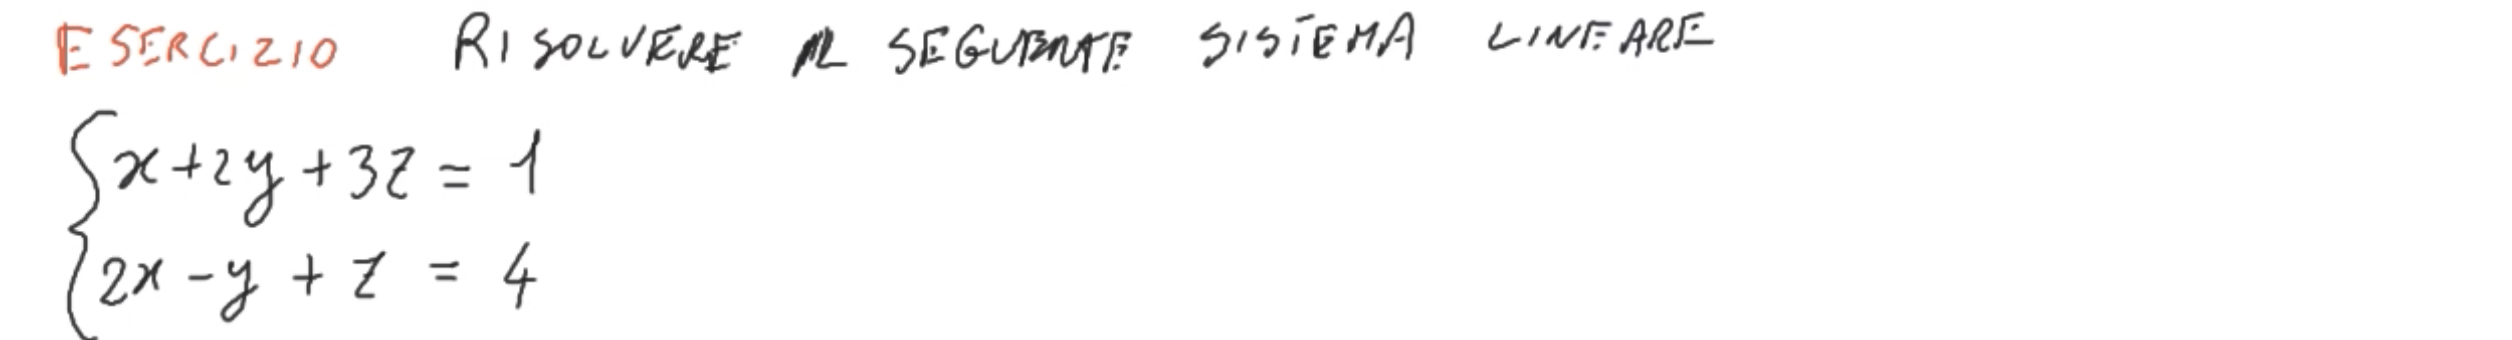 ESERCIZIO RISOLVERE IL SEGUENTE SISTEMA LINEARE
x+2y+3z=1
2x-y+z=4